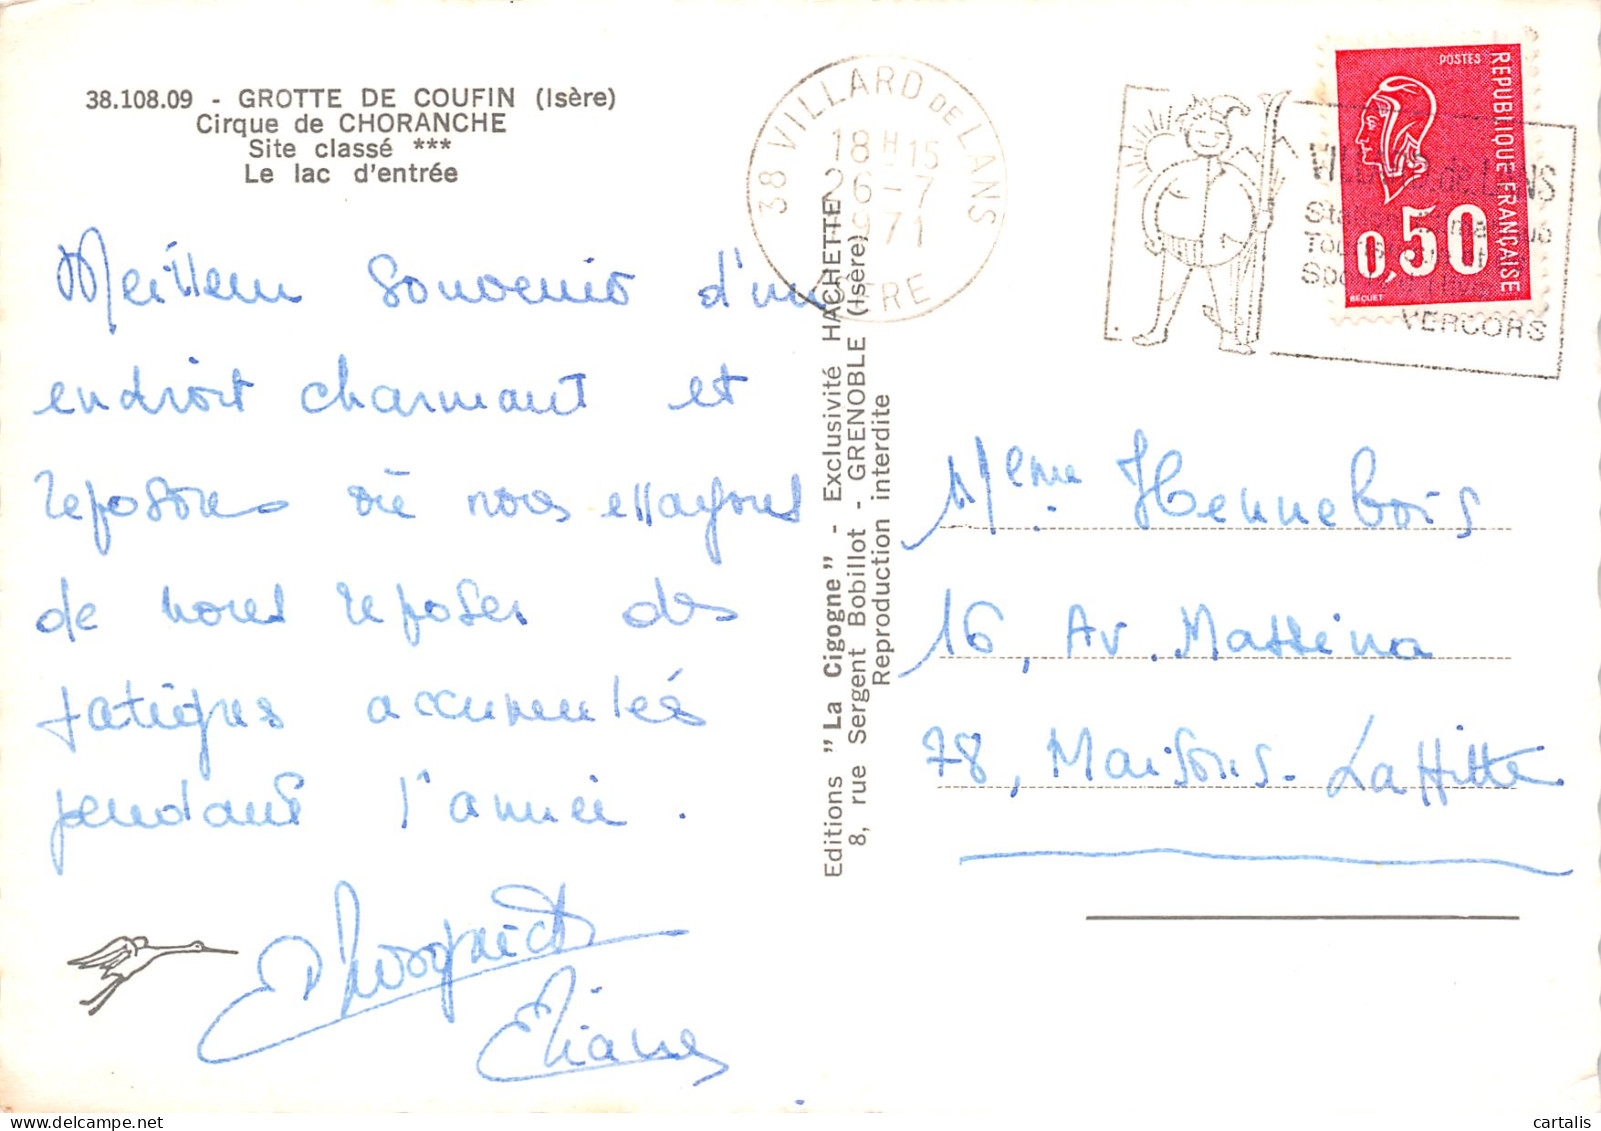 38.108.09 - GROTTE DE COUFIN (Isère)
Cirque de CHORANCHE
Site classé ***
Le lac d'entrée
Meilleur souvenir d'un
endroit charmant et
reposons où nous essayons
de nous reposer des
fatigues accumulés
pendant l'année.
Eliane
Editions "La Cigogne" - Exclusivité HACHETTE
8, rue Sergent Bobillot - GRENOBLE (Isère)
Reproduction interdite
38 VILLARD DE LANS
18H15
26-7
1971
ISERE
VILLARD de LANS
VERCORS
POSTES
REPUBLIQUE FRANÇAISE
0,50
BEQUET
Meme. Hennebois
16, Av. Massena
78, Maisons-Laffitte
cartalis